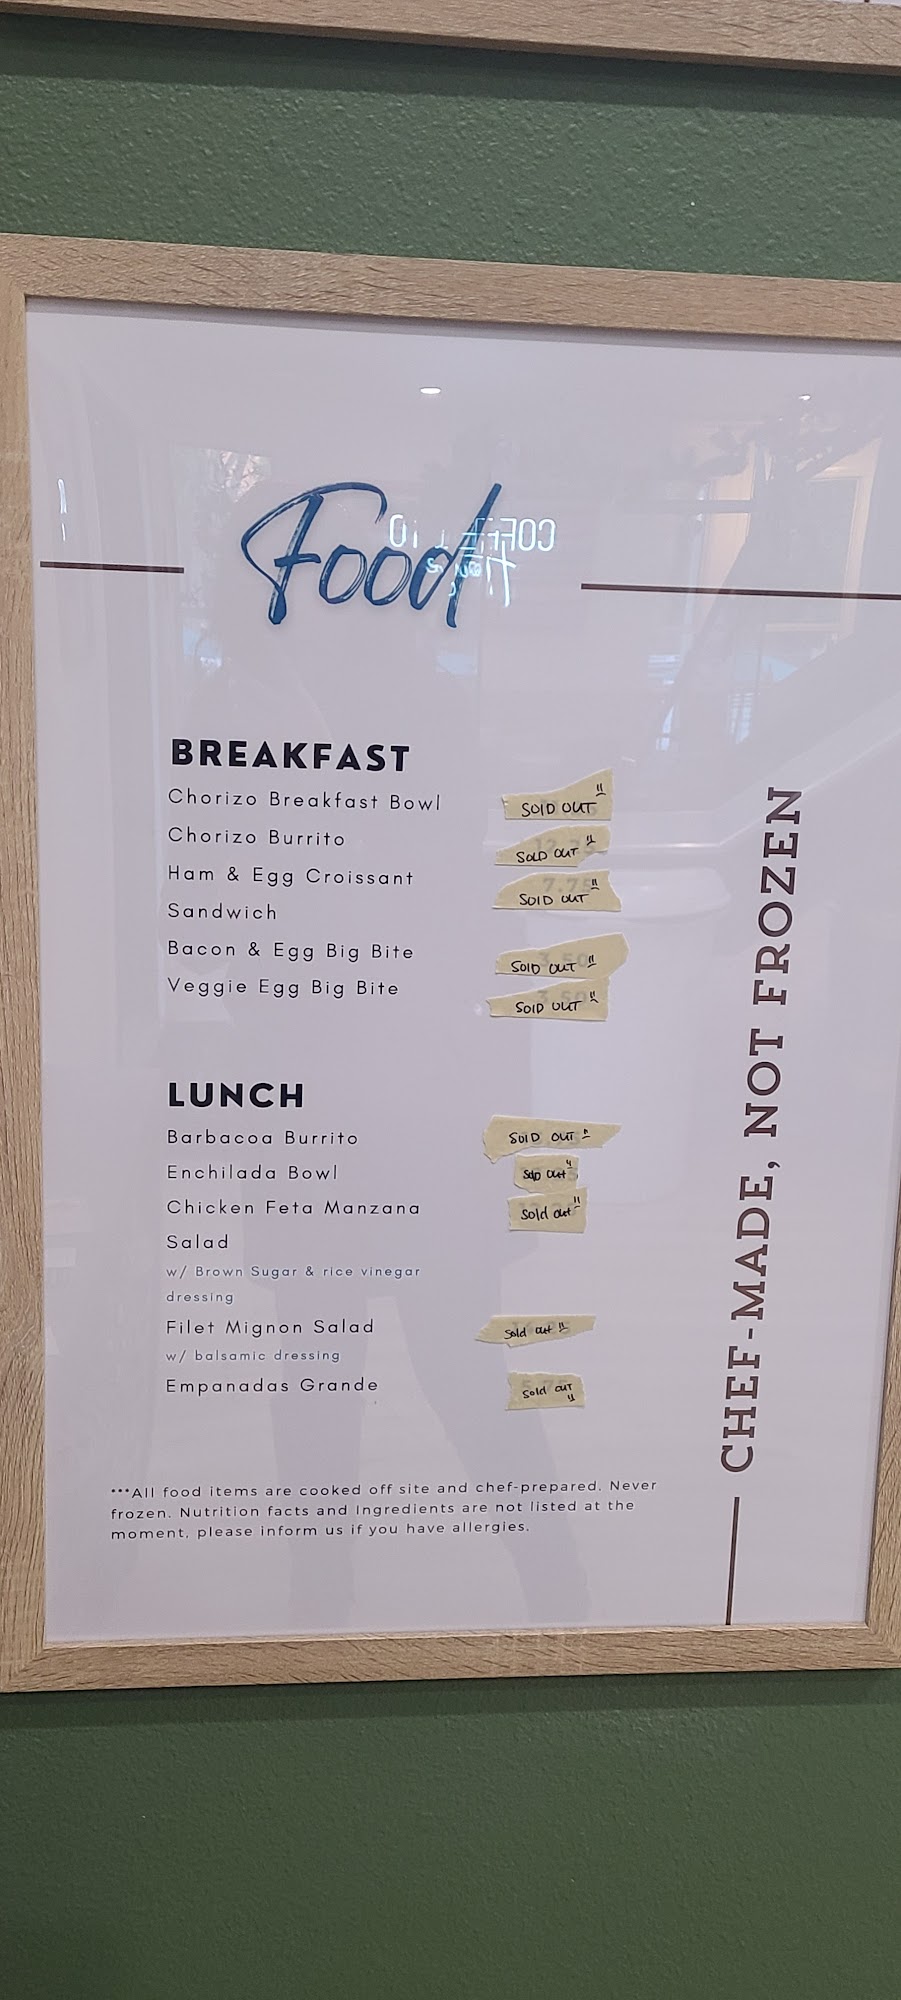 Food
BREAKFAST
Chorizo Breakfast Bowl SOLD OUT
Chorizo Burrito SOLD OUT
Ham & Egg Croissant 7.75 SOLD OUT
Sandwich
Bacon & Egg Big Bite 3.50 SOLD OUT
Veggie Egg Big Bite 3.50 SOLD OUT
LUNCH
Barbacoa Burrito SOLD OUT
Enchilada Bowl Sold out
Chicken Feta Manzana Sold out
Salad
w/ Brown Sugar & rice vinegar
dressing
Filet Mignon Salad Sold out
w/ balsamic dressing
Empanadas Grande Sold out
***All food items are cooked off site and chef-prepared. Never
frozen. Nutrition facts and Ingredients are not listed at the
moment, please inform us if you have allergies.
CHEF-MADE, NOT FROZEN